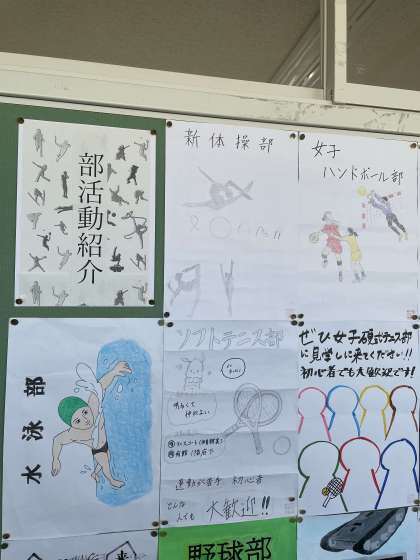 部活動紹介
新体操部
女子
ハンドボール部
水泳部
ソフトテニス部
明るくて
仲がよい
運動が苦手 初心者
どんな
人でも 大歓迎!!
ぜひ女子硬式テニス部
に見学しに来てください!!
初心者でも大歓迎です!
野球部